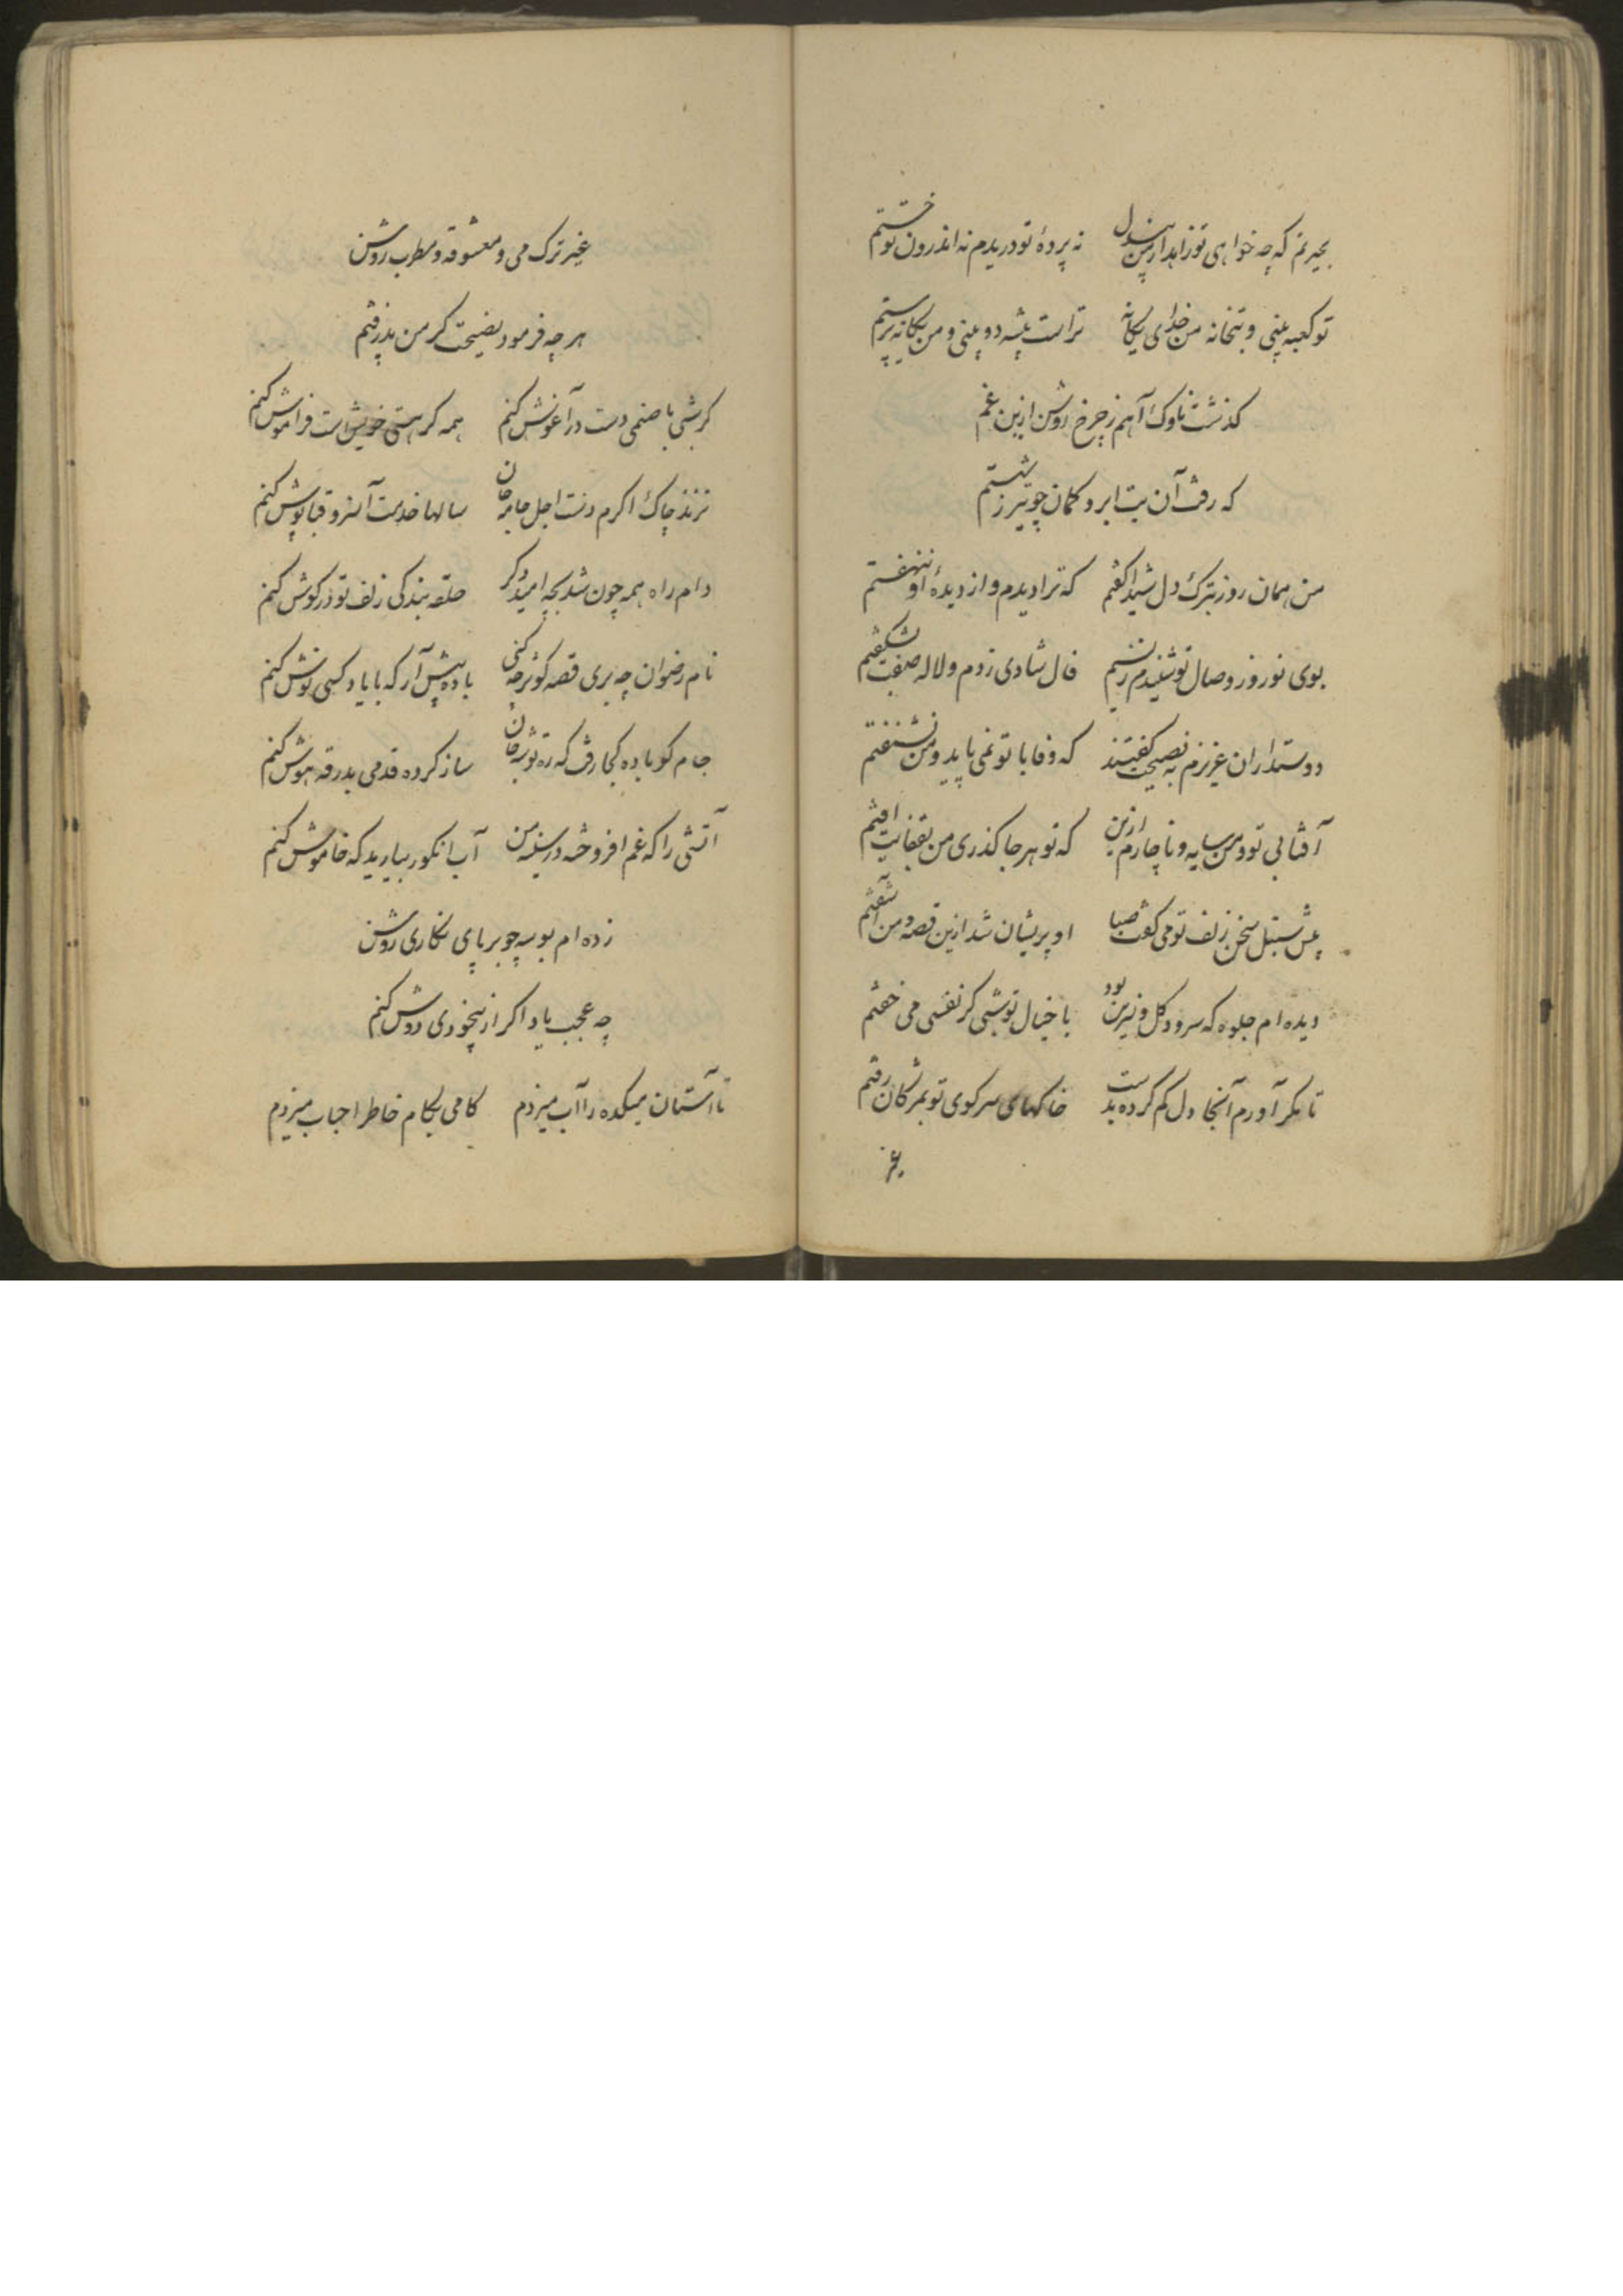 بحیرتم که چه خواهی تو زاهدا ز من بیدل    نه پردهٔ تو دریدم نه اندرون تو خستم
تو کعبه بینی و بتخانه من خدای یگانه    تراست پیشه دو بینی و من یگانه پرستم
گذشت ناوک آهم ز چرخ روشن ازین غم
که رفت آن بت ابرو کمان چو تیر ز شستم
من همان روز بترک دل شیدا گفتم    که ترا دیدم و از دیدهٔ او ننهفتم
بوی نوروز وصال تو شنیدم ز نسیم    فال شادی زدم و لاله صفت بشکفتم
دوستداران عزیزم به نصیحت گفتند    که وفا با تو نمی پاید و من نشنفتم
آفتابی تو و من سایه و ناچارم ازین    که تو هر جا گذری من بقفایت افتم
پیش سنبل سخن زلف تو می گفت صبا    او پریشان شد ازین قصه و من آشفتم
دیده ام جلوه که سرو و گل و نسرین بود    با خیال تو شبی گر نفسی می خفتم
تا مگر آورم آنجا دل گم کرده بدست    خاکهای سر کوی تو بمژگان رفتم
غیر
غیر ترک می و معشوقه و مطرب روشن
هر چه فرمود نصیحت گر من پذرفتم
گر شبی با صنمی دست در آغوش کنم    همه گر هستی خویش است فراموش کنم
نزند چاک اگرم دست اجل جامه جان    سالها خدمت آن سرو قباپوش کنم
دام راه همه چون شد بچه امید دگر    حلقه بندگی زلف تو در گوش کنم
نام رضوان چه بری قصه کوثر چه کنی    باده پیش آر که با یاد کسی نوش کنم
جام کو باده کجا رفت که ره توشه جان    ساز کرده قدمی بدرقه هوش کنم
آتشی را که غم افروخته در سینه من    آب انگور بیارید که خاموش کنم
زده ام بوسه چو بر پای نگاری روشن
چه عجب یاد اگر از بیخودی دوش کنم
تا آستان میکده را آب میزدم    گامی بکام خاطر احباب میزدم